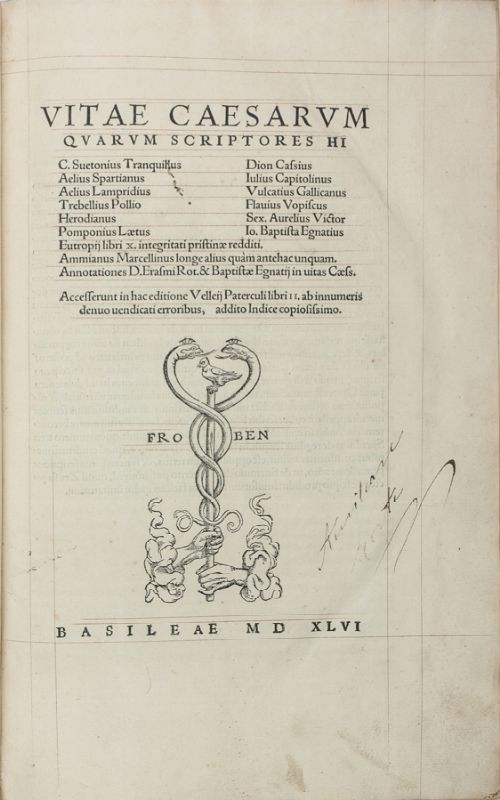 VITAE CAESARVM
QVARVM SCRIPTORES HI
C. Suetonius Tranquillus Dion Cassius
Aelius Spartianus Iulius Capitolinus
Aelius Lampridius Vulcatius Gallicanus
Trebellius Pollio Flauius Vopiscus
Herodianus Sex. Aurelius Victor
Pomponius Lætus Io. Baptista Egnatius
Eutropij libri x. integritati pristinæ redditi.
Ammianus Marcellinus longe alius quàm antehac unquam.
Annotationes D. Erasmi Rot. & Baptistæ Egnatij in uitas Cæss.
Accesserunt in hac editione Velleij Paterculi libri II. ab innumeris
denuo uendicati erroribus, addito Indice copiosissimo.
FRO BEN
BASILEAE MD XLVI